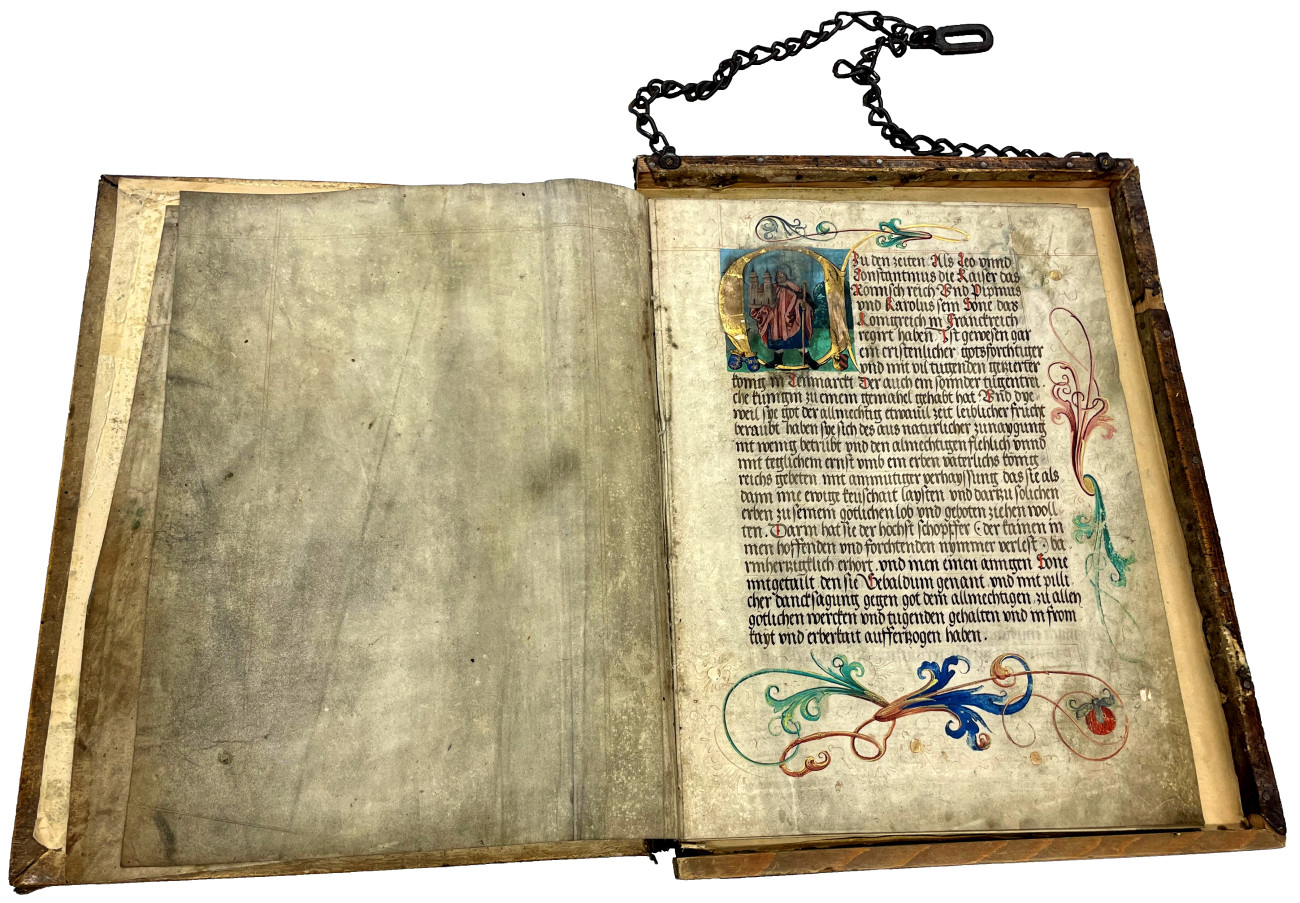 Zu den zeiten Als Leo vnnd
Constantinus die Kaiser das
Romisch reich Vnd Pipinus
vnd Karolus sein Sone das
Konigreich in Franckreich
regirt haben Ist gewesen gar
ein cristenlicher gotsforchtiger
vnd mit vil tugenden gezierter
konig in Tenmarckt Der auch ein sonnder tugentrei
che kunigin zu einem gemahel gehabt hat Vnd dye
weil sye got der allmechtig etwauil zeit leiblicher frucht
beraubt haben sye sich des aus naturlicher zunaygung
nit wenig betrubt vnd den almechtigen flehlich vnnd
mit teglichem ernst vmb ein erben vaterlichs konig
reichs gebeten mit anmutiger verhayssung das sie als
dann ine ewige keuschait laysten vnd dartzu solichen
erben zu seinem gotlichen lob vnd geboten ziehen woll
ten. Darin hat sie der hochst schopffer der kainen in
men hoffenden vnd forchtenden nymmer verlest ba
rmhertzigklich erhort vnd inen einen ainigen Sone
mitgetailt den sie Sebaldum genant vnd mit pilli
cher dancksagung gegen got dem allmechtigen zu allen
gotlichen wercken vnd tugenden gehalten vnd in from
kayt vnd erberkait aufferzogen haben.